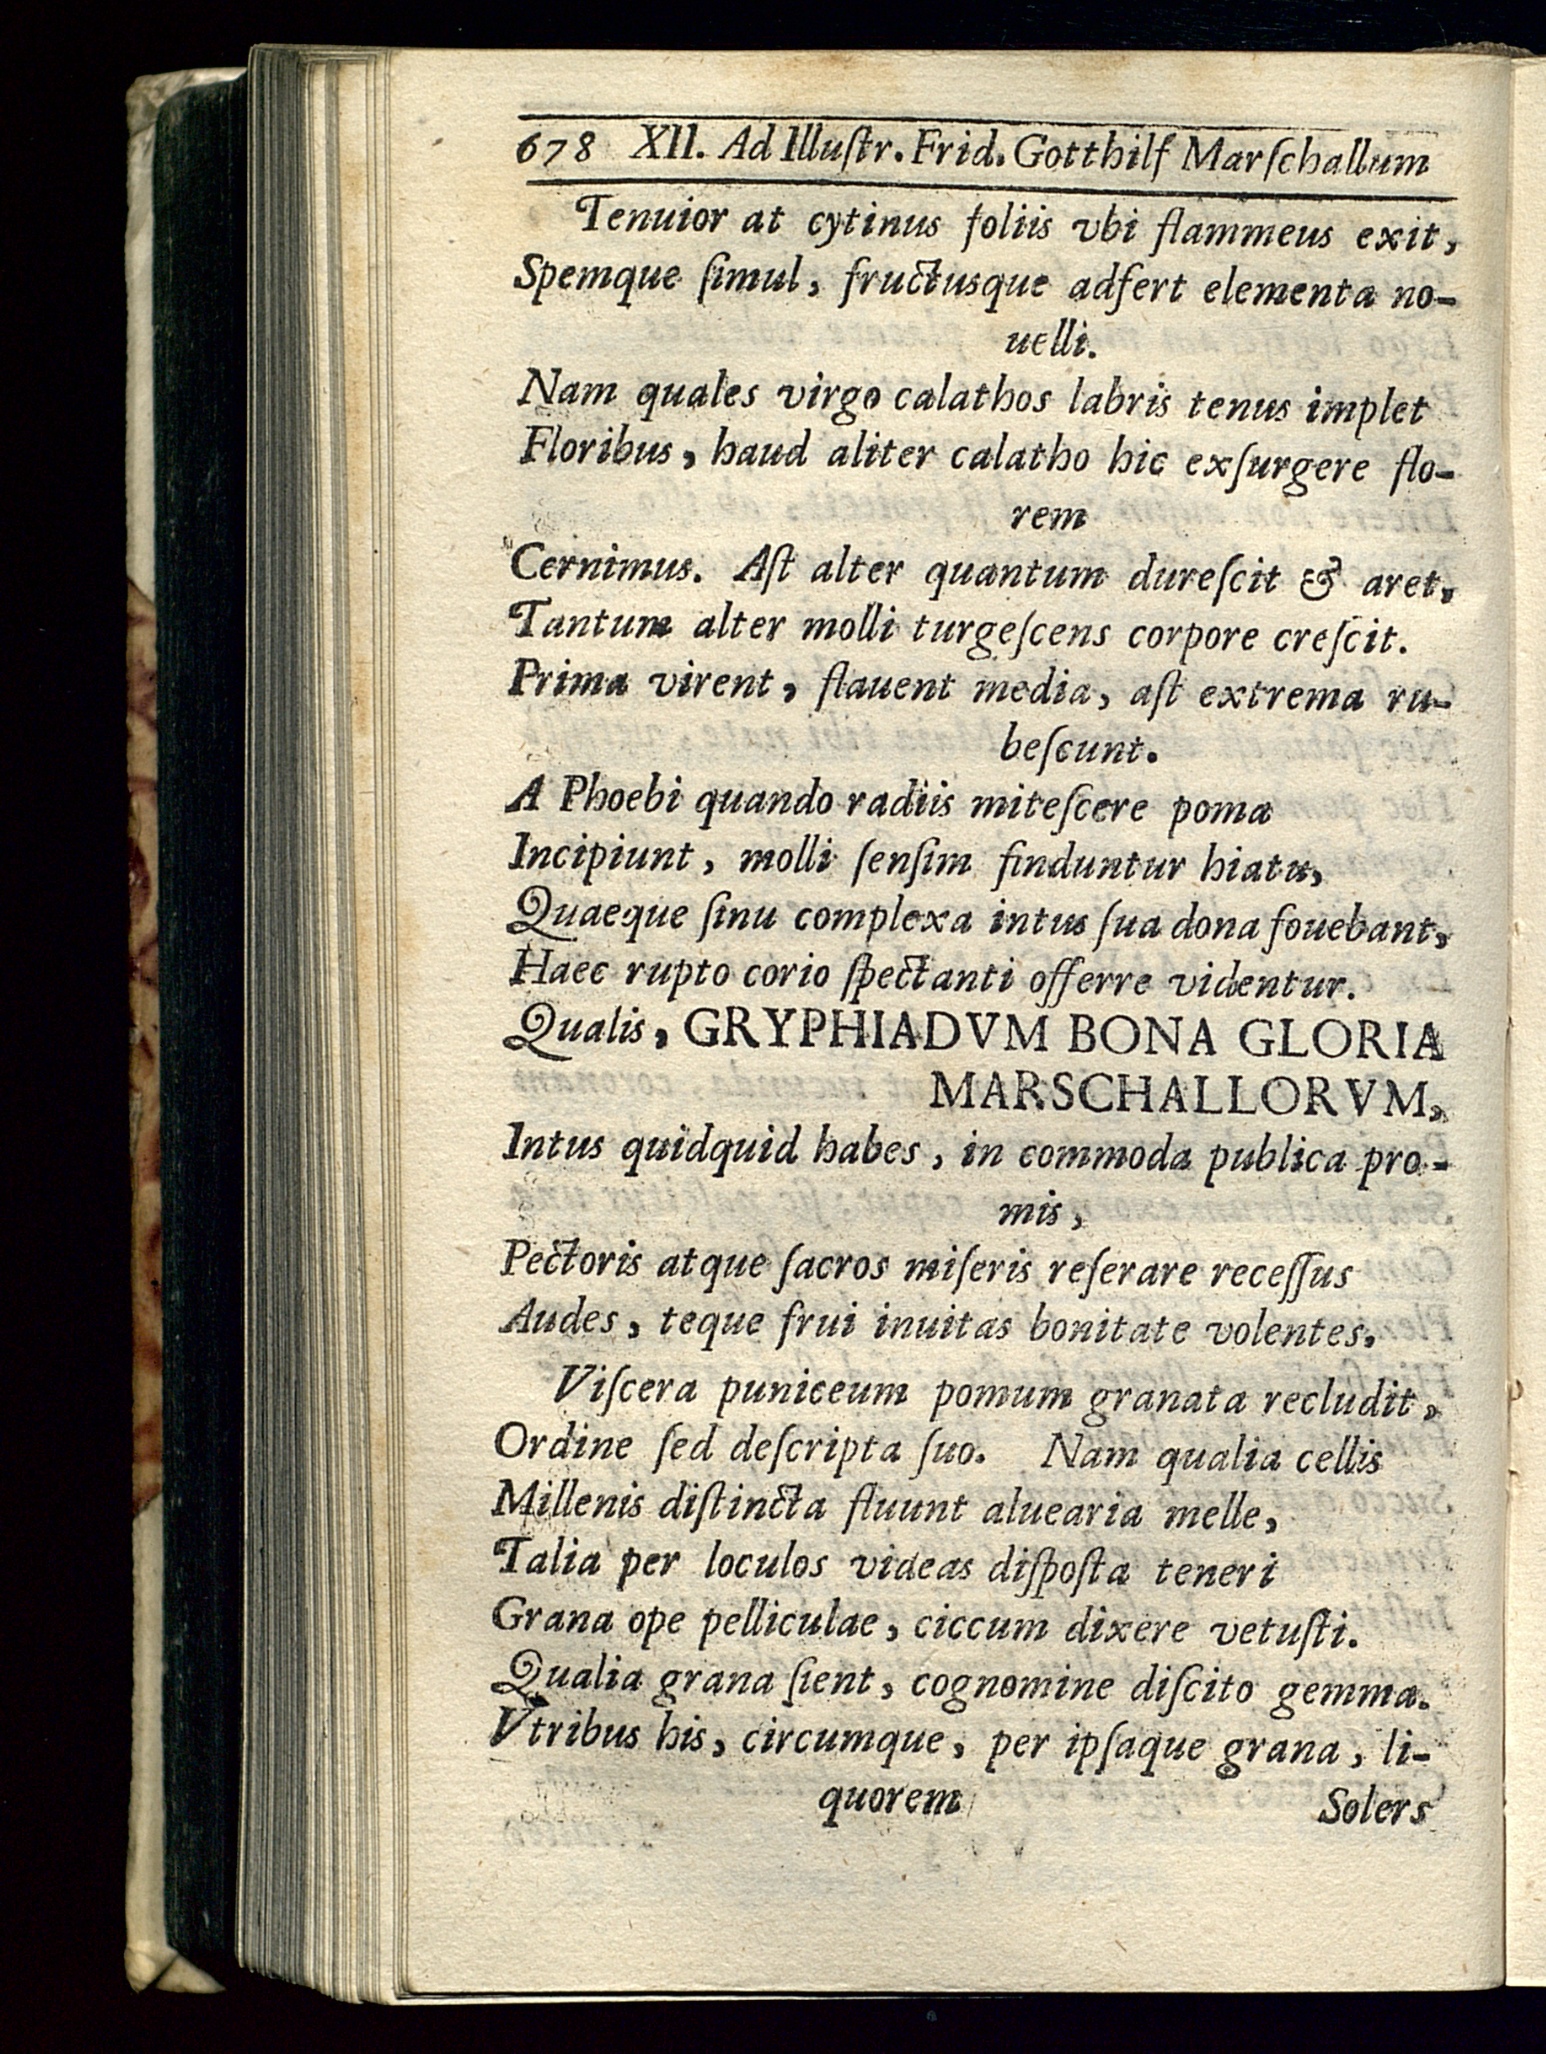 678 XII. Ad Illuſtr. Frid. Gotthilf Marſchallum
Tenuior at cytinus foliis vbi flammeus exit,
Spemque ſimul, fructusque adfert elementa no-
uelli.
Nam quales virgo calathos labris tenus implet
Floribus, haud aliter calatho hic exſurgere flo-
rem
Cernimus. Aſt alter quantum dureſcit & aret,
Tantum alter molli turgeſcens corpore creſcit.
Prima virent, flauent media, aſt extrema ru-
beſcunt.
A Phoebi quando radiis miteſcere poma
Incipiunt, molli ſenſim finduntur hiatu,
Quaeque ſinu complexa intus ſua dona fouebant,
Haec rupto corio ſpectanti offerre videntur.
Qualis, GRYPHIADVM BONA GLORIA
MARSCHALLORVM,
Intus quidquid habes, in commoda publica pro-
mis,
Pectoris atque ſacros miſeris reſerare receſſus
Audes, teque frui inuitas bonitate volentes.
Viſcera puniceum pomum granata recludit,
Ordine ſed deſcripta ſuo. Nam qualia cellis
Millenis diſtincta fluunt aluearia melle,
Talia per loculos videas diſpoſta teneri
Grana ope pelliculae, ciccum dixere vetuſti.
Qualia grana ſient, cognomine diſcito gemma.
Vtribus his, circumque, per ipſaque grana, li-
quorem
Solers